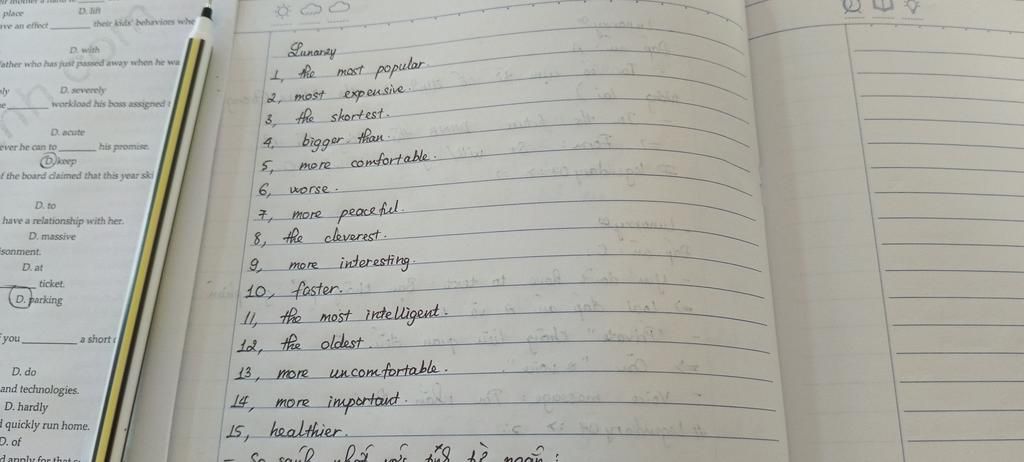 place D. lift
ve an effect ______ their kids' behaviors whe
D. with
father who has just passed away when he wa
D. severely
______ workload his boss assigned
D. acute
ever he can to ______ his promise.
D. keep
f the board claimed that this year ski
D. to
have a relationship with her.
D. massive
sonment.
D. at
______ ticket.
D. parking
you ______ a short
D. do
and technologies.
D. hardly
quickly run home.
D. of
d apply for that
Lunaray
1, the most popular.
2, most expensive.
3, the shortest.
4, bigger than.
5, more comfortable.
6, worse.
7, more peaceful.
8, the cleverest.
9, more interesting.
10, faster.
11, the most intelligent.
12, the oldest.
13, more uncomfortable.
14, more important.
15, healthier.
- So sánh nhất với tính từ ngắn :